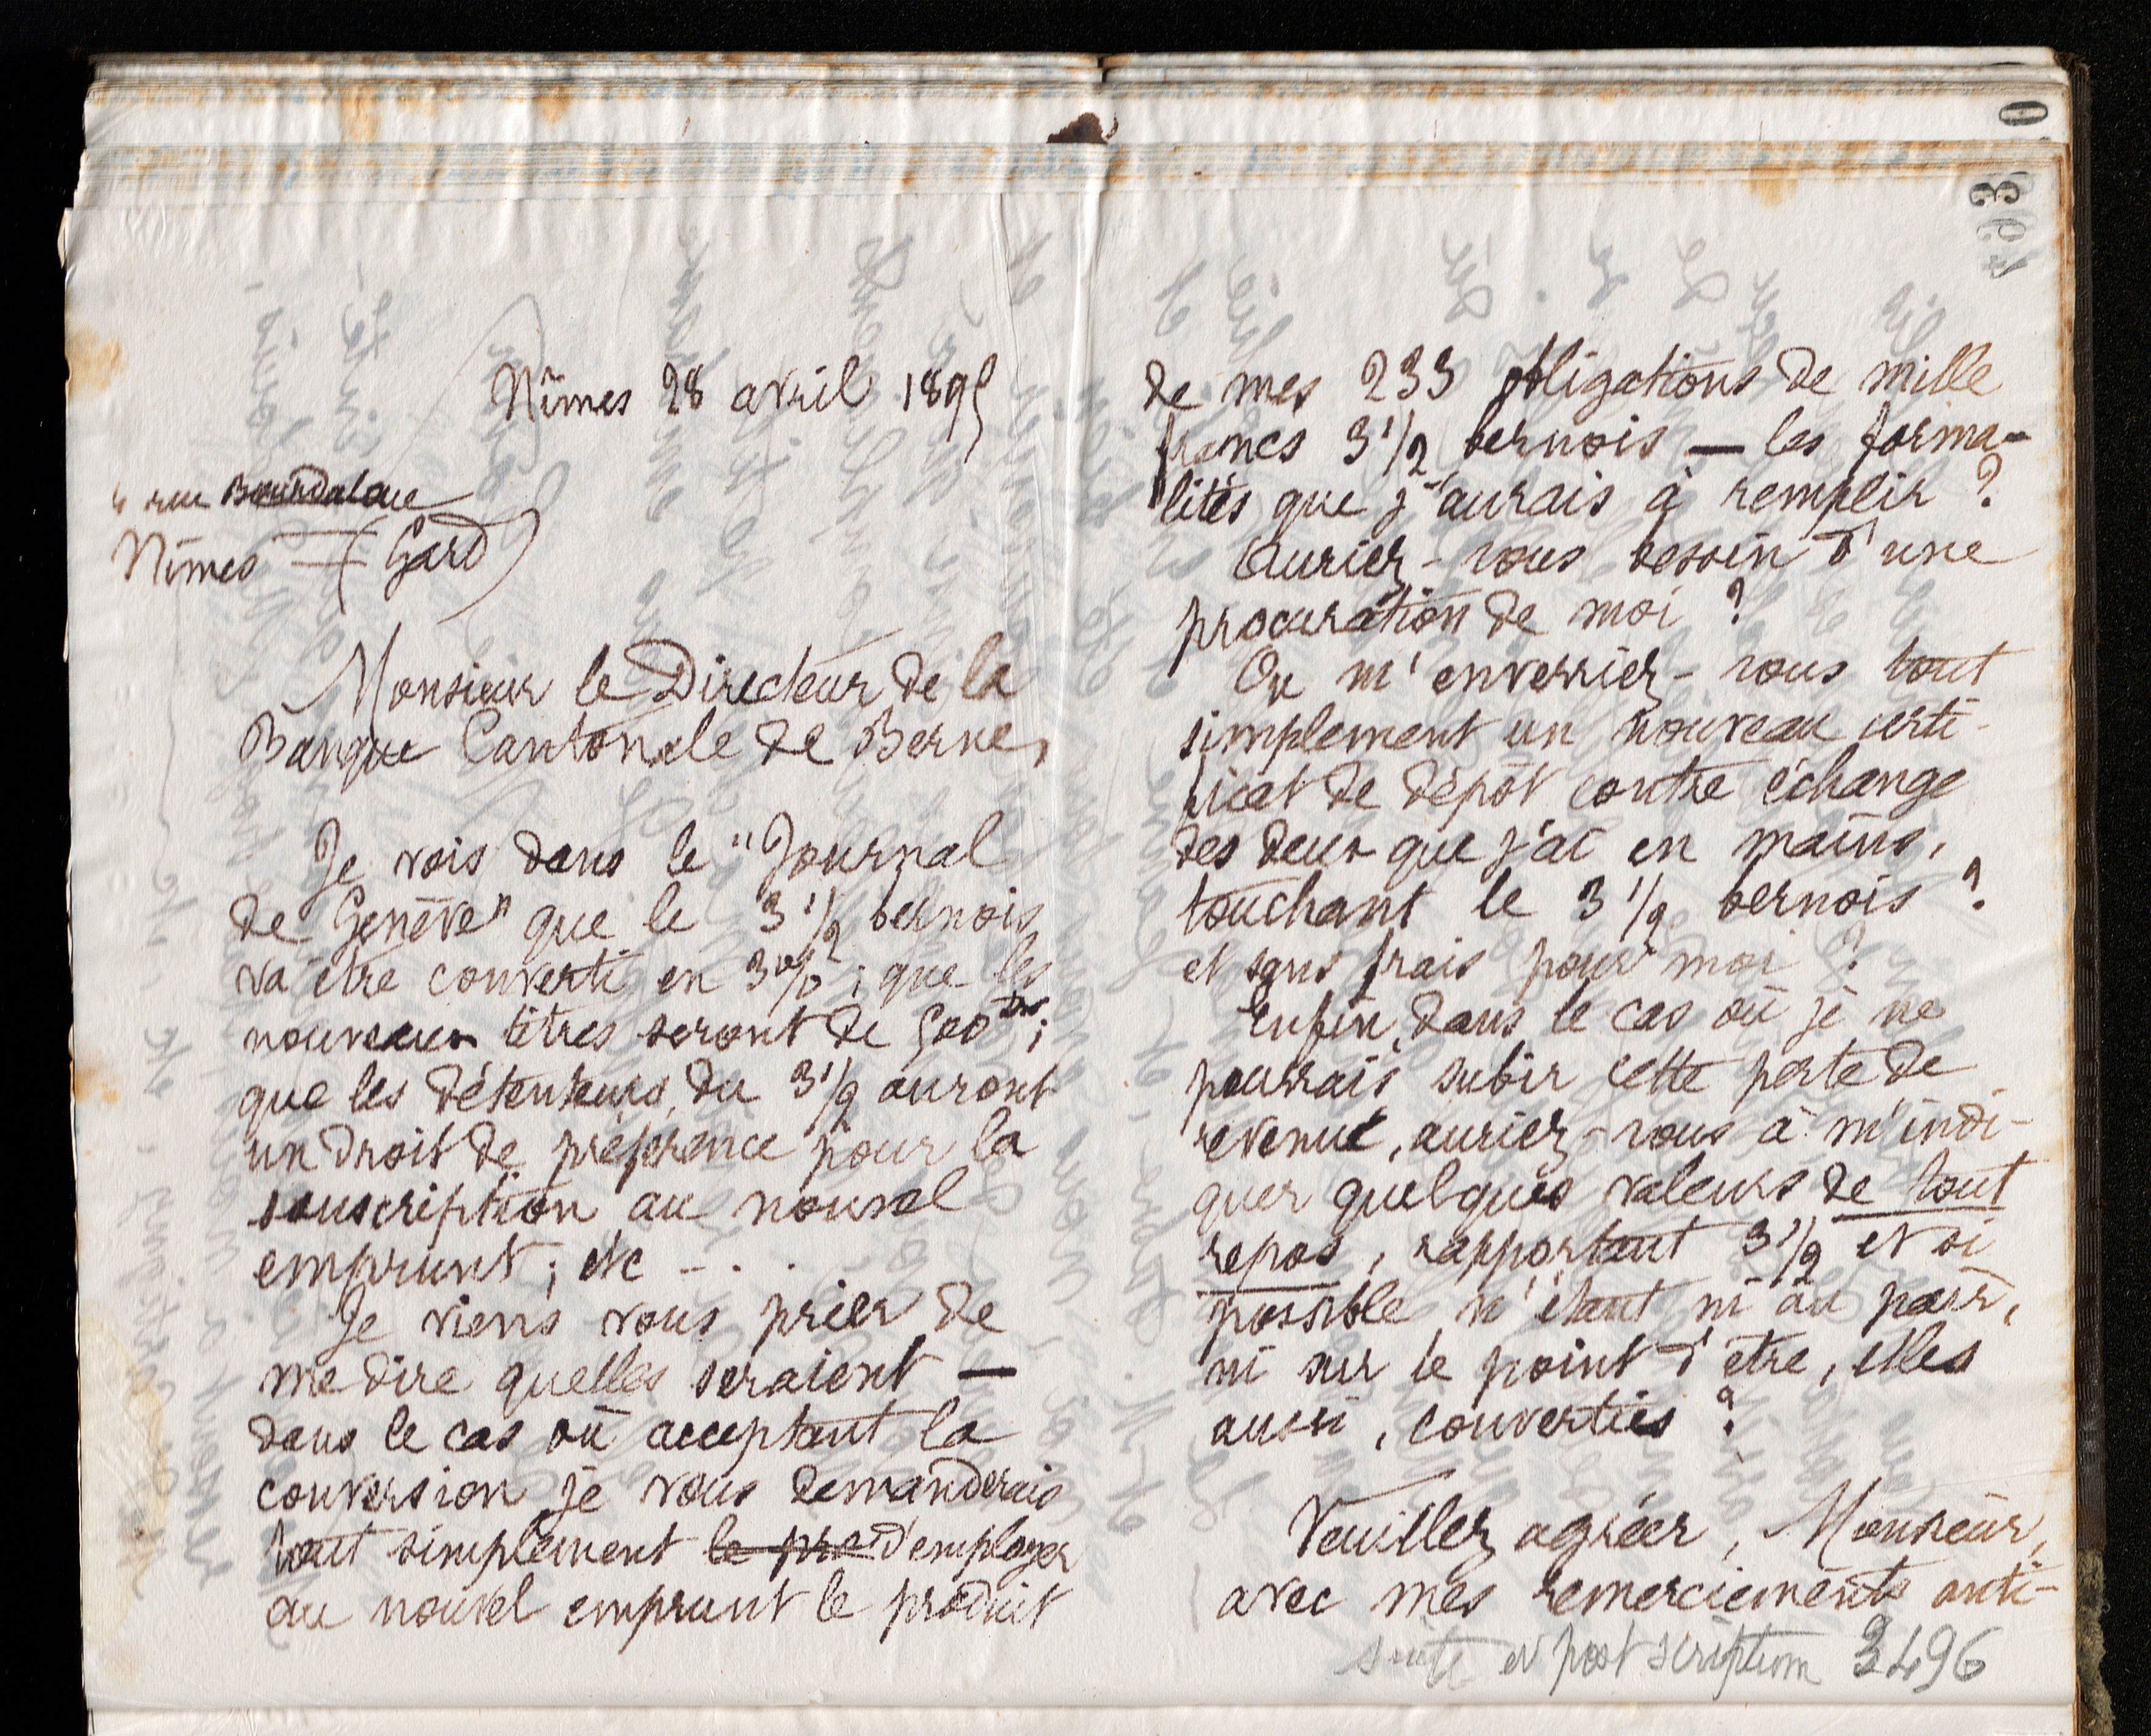 Nîmes 28 avril 1895
4 rue Bourdaloue
Nîmes — (Gard)
Monsieur le Directeur de la
Banque Cantonale de Berne,
Je vois dans le "Journal
de Genève" que le 3 1/2 bernois
va être converti en 3 % ; que les
nouveaux titres seront de 500 frs ;
que les détenteurs du 3 1/2 auront
un droit de préférence pour la
souscription au nouvel
emprunt ; etc - . .
Je viens vous prier de
me dire quelles seraient —
dans le cas où acceptant la
conversion je vous demanderais
tout simplement le pro d'employer
au nouvel emprunt le produit
de mes 233 obligations de mille
francs 3 1/2 bernois — les forma-
lités que j'aurais à remplir ?
Auriez-vous besoin d'une
procuration de moi ?
Ou m'enverriez-vous tout
simplement un nouveau certi-
ficat de dépôt contre échange
des deux que j'ai en mains,
touchant le 3 1/2 bernois ?
et sans frais pour moi ?
Enfin, dans le cas où je ne
pourrais subir cette perte de
revenu, auriez-vous à m'indi-
quer quelques valeurs de tout
repos, rapportant 3 1/2 et si
possible n'étant ni au pair,
ni sur le point d'être, elles
aussi, converties ?
Veuillez agréer, Monsieur,
avec mes remerciements anti-
suite et post scriptum 3496
0
3